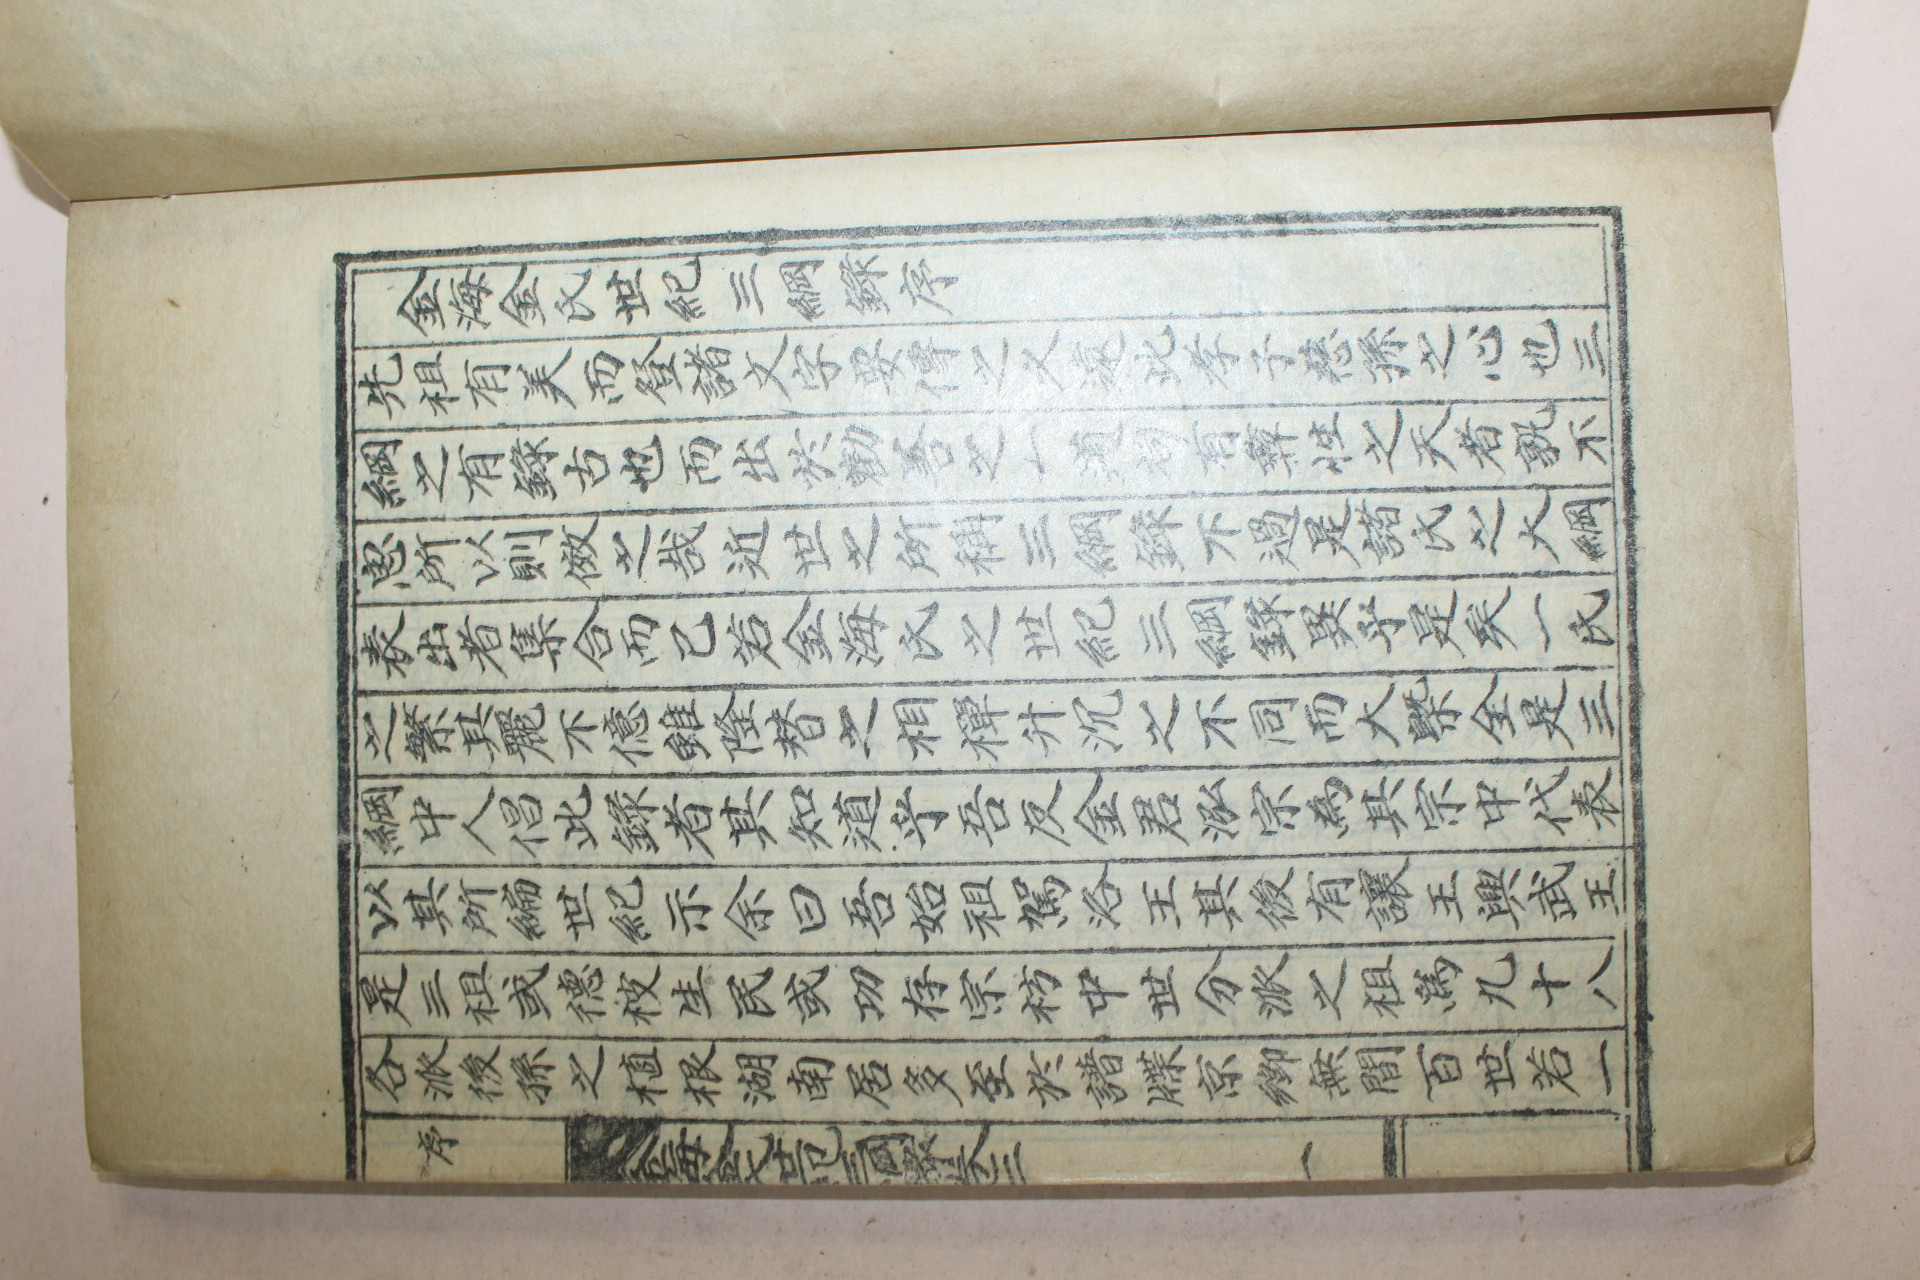 金海金氏世紀三綱錄序
先祖有美而登諸文字傳之久遠此孝子慈孫之心也三
綱之有錄古也而出於勸善之一道有彝性之天者孰不
思所以則傚之哉近世之所稱三綱錄不過是諸氏之大綱
表出者集合而已若金海氏之世紀三綱錄異乎是矣一氏
之繁其麗不億雖隆替之相禪升沉之不同而大槩全是三
綱中人倡此錄者其知道乎吾友金君泓宗爲其宗中代表
以其所編世紀示余曰吾始祖駕洛王其後有讓王興武王
是三祖或德被生民或功存宗祊中世分派之祖爲九十八
各派後孫之植根湖南居多至於譜牒京鄉無間百世若一
序
金海氏世紀三綱錄
一